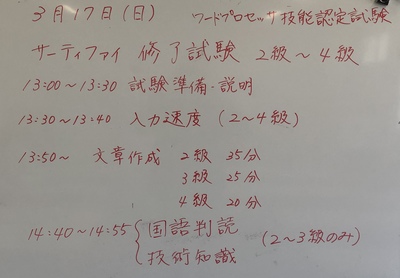 3月17日(日) ワードプロセッサ技能認定試験
サーティファイ 修了試験 2級～4級
13:00～13:30 試験準備・説明
13:30～13:40 入力速度 (2～4級)
13:50～ 文章作成 2級 35分
3級 25分
4級 20分
14:40～14:55 { 国語判読 (2～3級のみ)
技術知識